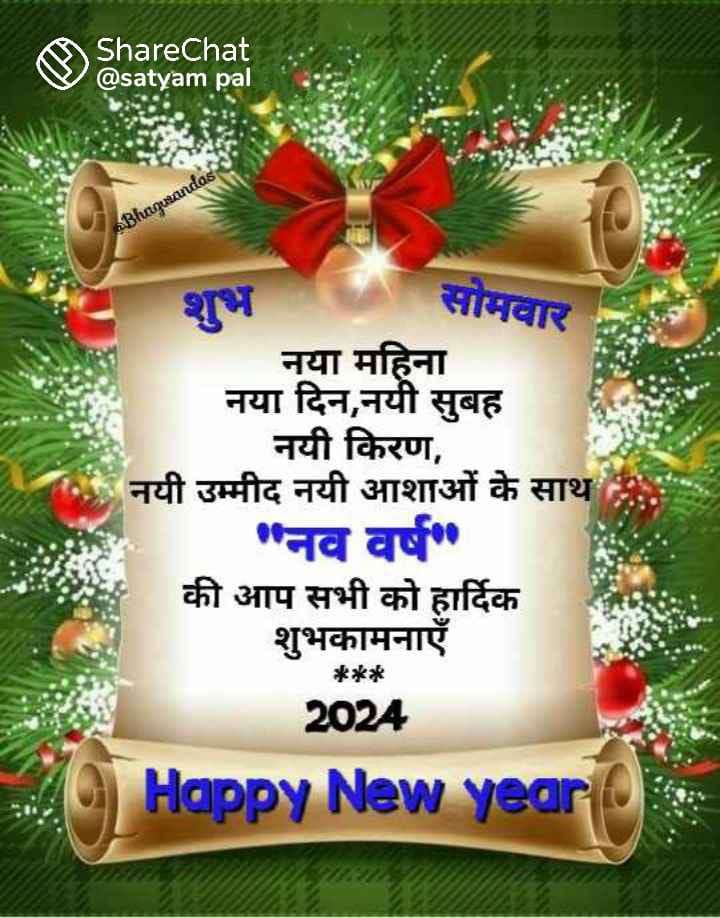 ShareChat
@satyam pal
@Bhagwandas
शुभ सोमवार
नया महिना
नया दिन,नयी सुबह
नयी किरण,
नयी उम्मीद नयी आशाओं के साथ
"नव वर्ष"
की आप सभी को हार्दिक
शुभकामनाएँ
***
2024
Happy New year